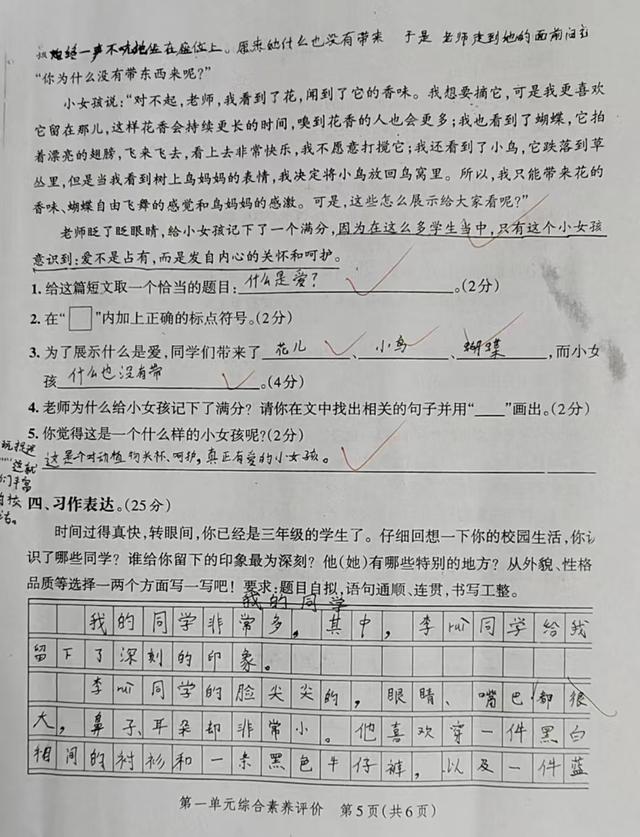 一声不吭地坐在座位上。原来她什么也没有带来 于是 老师走到她的面前问
“你为什么没有带东西来呢?”
小女孩说:“对不起,老师,我看到了花,闻到了它的香味。我想要摘它,可是我更喜欢
它留在那儿,这样花香会持续更长的时间,嗅到花香的人也会更多;我也看到了蝴蝶,它拍
着漂亮的翅膀,飞来飞去,看上去非常快乐,我不愿意打搅它;我还看到了小鸟,它跌落到草
丛里,但是当我看到树上鸟妈妈的表情,我决定将小鸟放回鸟窝里。所以,我只能带来花的
香味、蝴蝶自由飞舞的感觉和鸟妈妈的感激。可是,这些怎么展示给大家看呢?”
老师眨了眨眼睛,给小女孩记下了一个满分,因为在这么多学生当中,只有这个小女孩
意识到:爱不是占有,而是发自内心的关怀和呵护。
1. 给这篇短文取一个恰当的题目:什么是爱?。(2分)
2. 在“□”内加上正确的标点符号。(2分)
3. 为了展示什么是爱,同学们带来了 花儿、小鸟、蝴蝶,而小女
孩 什么也没有带。(4分)
4. 老师为什么给小女孩记下了满分? 请你在文中找出相关的句子并用“____”画出。(2分)
5. 你觉得这是一个什么样的小女孩呢?(2分)
这是个对动植物关怀、呵护,真正有爱的小女孩。
四、习作表达。(25分)
时间过得真快,转眼间,你已经是三年级的学生了。仔细回想一下你的校园生活,你认
识了哪些同学? 谁给你留下的印象最为深刻? 他(她)有哪些特别的地方? 从外貌、性格
品质等选择一两个方面写一写吧! 要求:题目自拟,语句通顺、连贯,书写工整。
我的同学
我的同学非常多,其中,李ruì同学给我
留下了深刻的印象。
李ruì同学的脸尖尖的,眼睛、嘴巴都很
大,鼻子、耳朵却非常小。他喜欢穿一件黑白
相间的衬衫和一条黑色牛仔裤,以及一件蓝
第一单元综合素养评价 第5页(共6页)